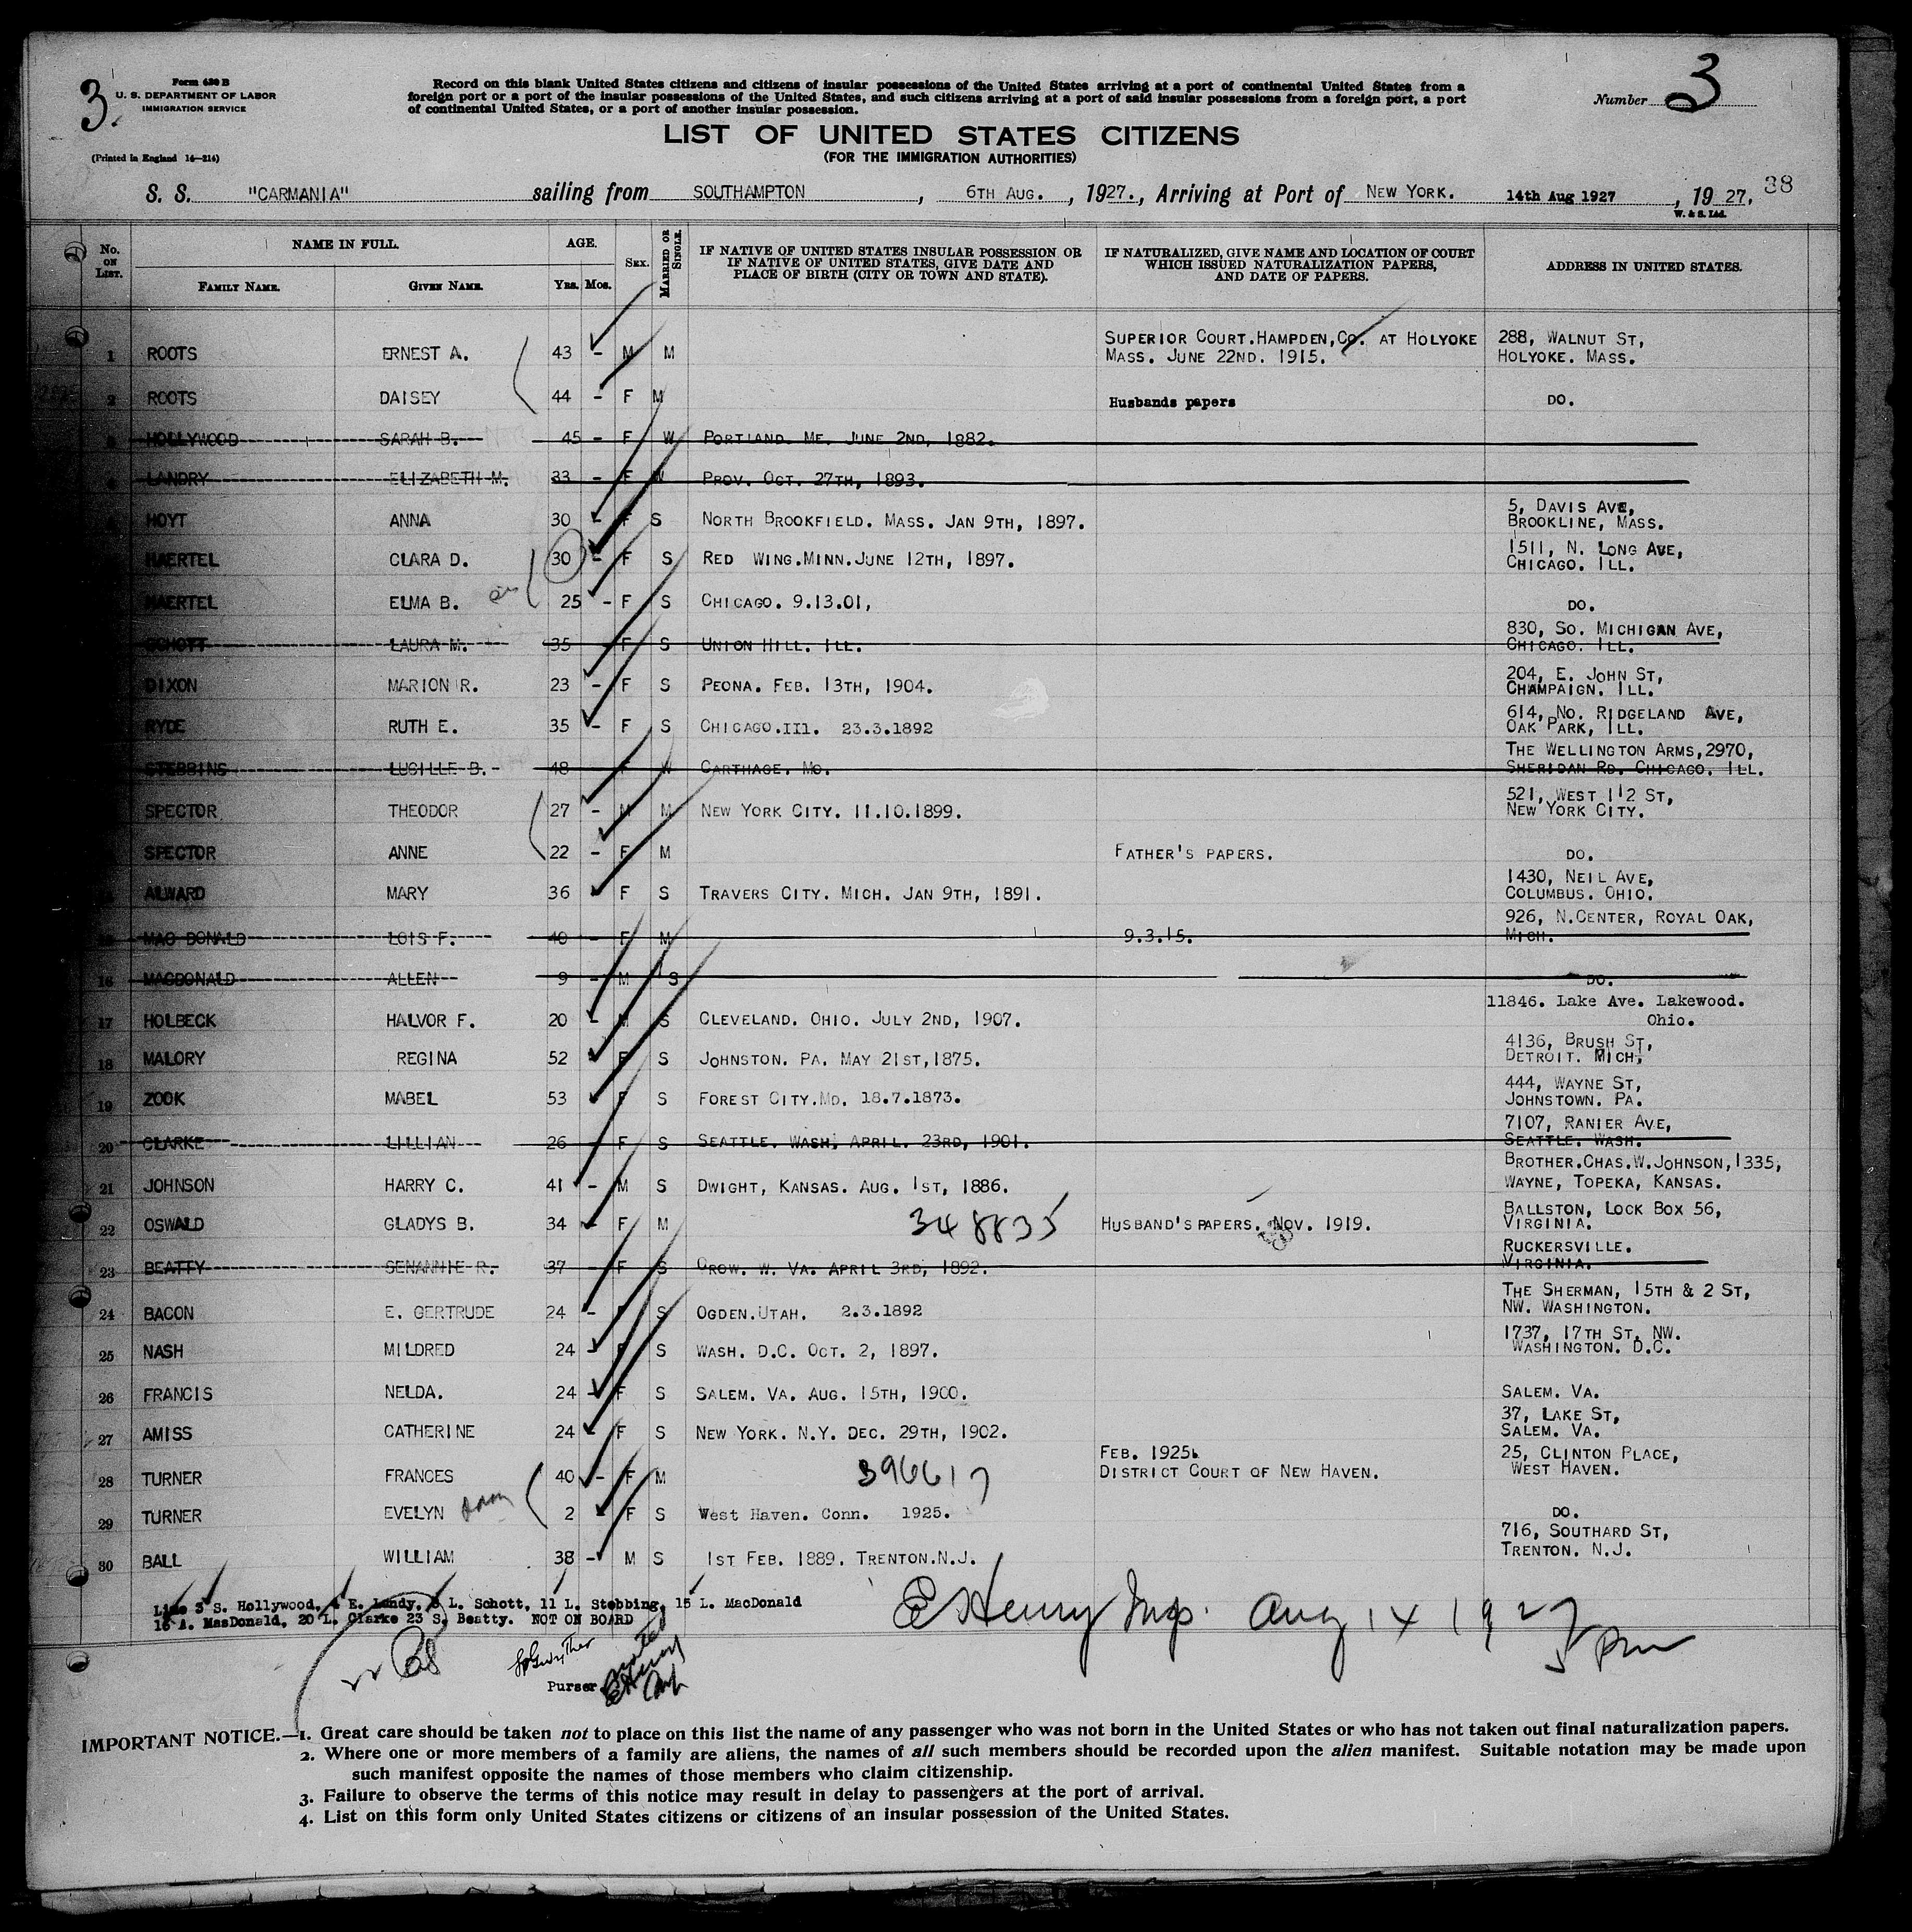 3.
Form 630 B
U. S. DEPARTMENT OF LABOR
IMMIGRATION SERVICE
(Printed in England 14—214)
Record on this blank United States citizens and citizens of insular possessions of the United States arriving at a port of continental United States from a
foreign port or a port of the insular possessions of the United States, and such citizens arriving at a port of said insular possessions from a foreign port, a port
of continental United States, or a port of another insular possession.
Number 3
LIST OF UNITED STATES CITIZENS
(FOR THE IMMIGRATION AUTHORITIES)
S. S. "CARMANIA" sailing from SOUTHAMPTON, 6TH AUG., 1927., Arriving at Port of NEW YORK. 14th Aug 1927, 1927. 38
W. & S. Ltd.
No. ON LIST. NAME IN FULL. FAMILY NAME. GIVEN NAME. AGE. YRS. MOS. SEX. MARRIED OR SINGLE. IF NATIVE OF UNITED STATES INSULAR POSSESSION OR IF NATIVE OF UNITED STATES, GIVE DATE AND PLACE OF BIRTH (CITY OR TOWN AND STATE). IF NATURALIZED, GIVE NAME AND LOCATION OF COURT WHICH ISSUED NATURALIZATION PAPERS, AND DATE OF PAPERS. ADDRESS IN UNITED STATES.
1 ROOTS ERNEST A. 43 - M M SUPERIOR COURT.HAMPDEN,CO. AT HOLYOKE MASS. JUNE 22ND. 1915. 288, WALNUT ST, HOLYOKE. MASS.
2 ROOTS DAISEY 44 - F M Husbands papers DO.
3 HOLLYWOOD SARAH B. 45 - F W PORTLAND. ME. JUNE 2ND, 1882.
4 LANDRY ELIZABETH M. 33 - F W PROV. OCT. 27TH, 1893.
HOYT ANNA 30 - F S NORTH BROOKFIELD. MASS. JAN 9TH, 1897. 5, DAVIS AVE, BROOKLINE, MASS.
HAERTEL CLARA D. 30 - F S RED WING.MINN.JUNE 12TH, 1897. 1511, N. LONG AVE, CHICAGO. ILL.
HAERTEL ELMA B. 25 - F S CHICAGO. 9.13.01, DO.
SCHOTT LAURA M. 35 - F S UNION HILL. ILL. 830, SO. MICHIGAN AVE, CHICAGO. ILL.
DIXON MARION R. 23 - F S PEONA. FEB. 13TH, 1904. 204, E. JOHN ST, CHAMPAIGN. ILL.
RYDE RUTH E. 35 - F S CHICAGO.Ill. 23.3.1892 614, NO. RIDGELAND AVE, OAK PARK, ILL.
STEBBINS LUCILLE B. 48 - F W CARTHAGE. MO. THE WELLINGTON ARMS,2970, SHERIDAN RD. CHICAGO. ILL.
SPECTOR THEODOR 27 - M M NEW YORK CITY. 11.10.1899. 521, WEST 112 ST, NEW YORK CITY.
SPECTOR ANNE 22 - F M FATHER'S PAPERS. DO.
ALWARD MARY 36 F S TRAVERS CITY. MICH. JAN 9TH, 1891. 1430, NEIL AVE, COLUMBUS. OHIO.
15 MAC DONALD LOIS F. 40 - F M 9.3.15. 926, N.CENTER, ROYAL OAK, MICH.
16 MACDONALD ALLEN 9 - M S DO.
17 HOLBECK HALVOR F. 20 - M S CLEVELAND. OHIO. JULY 2ND, 1907. 11846. Lake Ave. Lakewood. Ohio.
18 MALORY REGINA 52 - F S JOHNSTON. PA. MAY 21ST,1875. 4136, BRUSH ST, DETROIT. MICH,
19 ZOOK MABEL 53 - F S FOREST CITY.MO. 18.7.1873. 444, WAYNE ST, JOHNSTOWN. PA.
20 CLARKE LILLIAN 26 - F S SEATTLE. WASH. APRIL. 23RD, 1901. 7107, RANIER AVE, SEATTLE. WASH.
21 JOHNSON HARRY C. 41 - M S DWIGHT, KANSAS. AUG. 1ST, 1886. BROTHER.CHAS.W.JOHNSON,1335, WAYNE, TOPEKA, KANSAS.
22 OSWALD GLADYS B. 34 - F M 348835 HUSBAND'S PAPERS. NOV. 1919. BALLSTON, LOCK BOX 56, VIRGINIA.
23 BEATTY SENANNIE R. 37 - F S CROW. W. VA. APRIL 3RD, 1892. RUCKERSVILLE. VIRGINIA.
24 BACON E. GERTRUDE 24 - F S OGDEN.UTAH. 2.3.1892 THE SHERMAN, 15TH & 2 ST, NW. WASHINGTON.
25 NASH MILDRED 24 - F S WASH. D.C. OCT. 2, 1897. 1737, 17TH ST, NW. WASHINGTON. D.C.
26 FRANCIS NELDA. 24 - F S SALEM. VA. AUG. 15TH, 1900. SALEM. VA.
27 AMISS CATHERINE 24 F S NEW YORK. N.Y. DEC. 29TH, 1902. 37, LAKE ST, SALEM. VA.
28 TURNER FRANCES 40 - F M 396617 FEB. 1925. DISTRICT COURT OF NEW HAVEN. 25, CLINTON PLACE, WEST HAVEN.
29 TURNER EVELYN 2 - F S West Haven. Conn. 1925. DO.
30 BALL WILLIAM 38 - M S 1ST FEB. 1889. TRENTON.N.J. 716, SOUTHARD ST, TRENTON. N.J.
Line 3 S. Hollywood, 4 E. Landy, 8 L. Schott, 11 L. Stebbing, 15 L. MacDonald
16 A. MasDonald, 20 L. Clarke 23 S. Beatty. NOT ON BOARD
E Henry Insp. Aug 14 1927
5 Pm
Purser
IMPORTANT NOTICE.—1. Great care should be taken not to place on this list the name of any passenger who was not born in the United States or who has not taken out final naturalization papers.
2. Where one or more members of a family are aliens, the names of all such members should be recorded upon the alien manifest. Suitable notation may be made upon
such manifest opposite the names of those members who claim citizenship.
3. Failure to observe the terms of this notice may result in delay to passengers at the port of arrival.
4. List on this form only United States citizens or citizens of an insular possession of the United States.